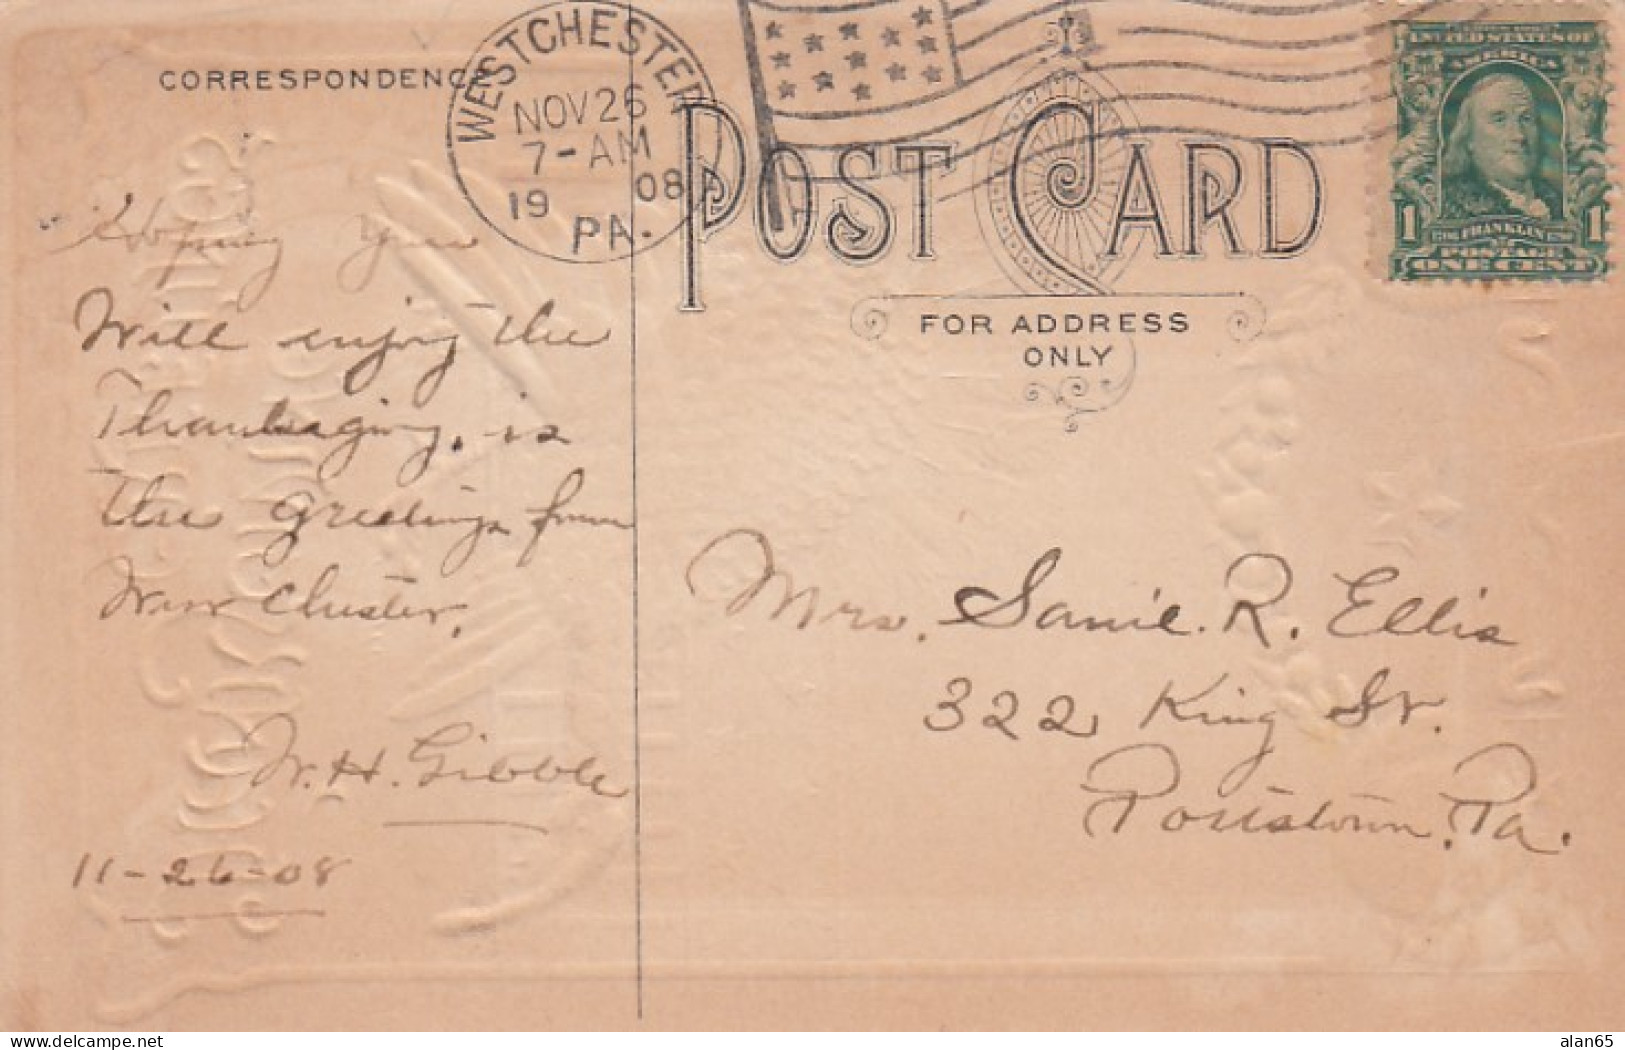 CORRESPONDENCE
WEST CHESTER
NOV 26
7-AM
19 08
PA.
POST CARD
FOR ADDRESS
ONLY
UNITED STATES OF
AMERICA
1 FRANKLIN 1
POSTAGE
ONE CENT
Hoping you
Will enjoy the
Thanksgiving. is
the greetings from
West Chester.
W. H. Gibble
11-26-08
Mrs. Sanie. R. Ellis
322 King St.
Pottstown. Pa.
delcampe.net
alan65